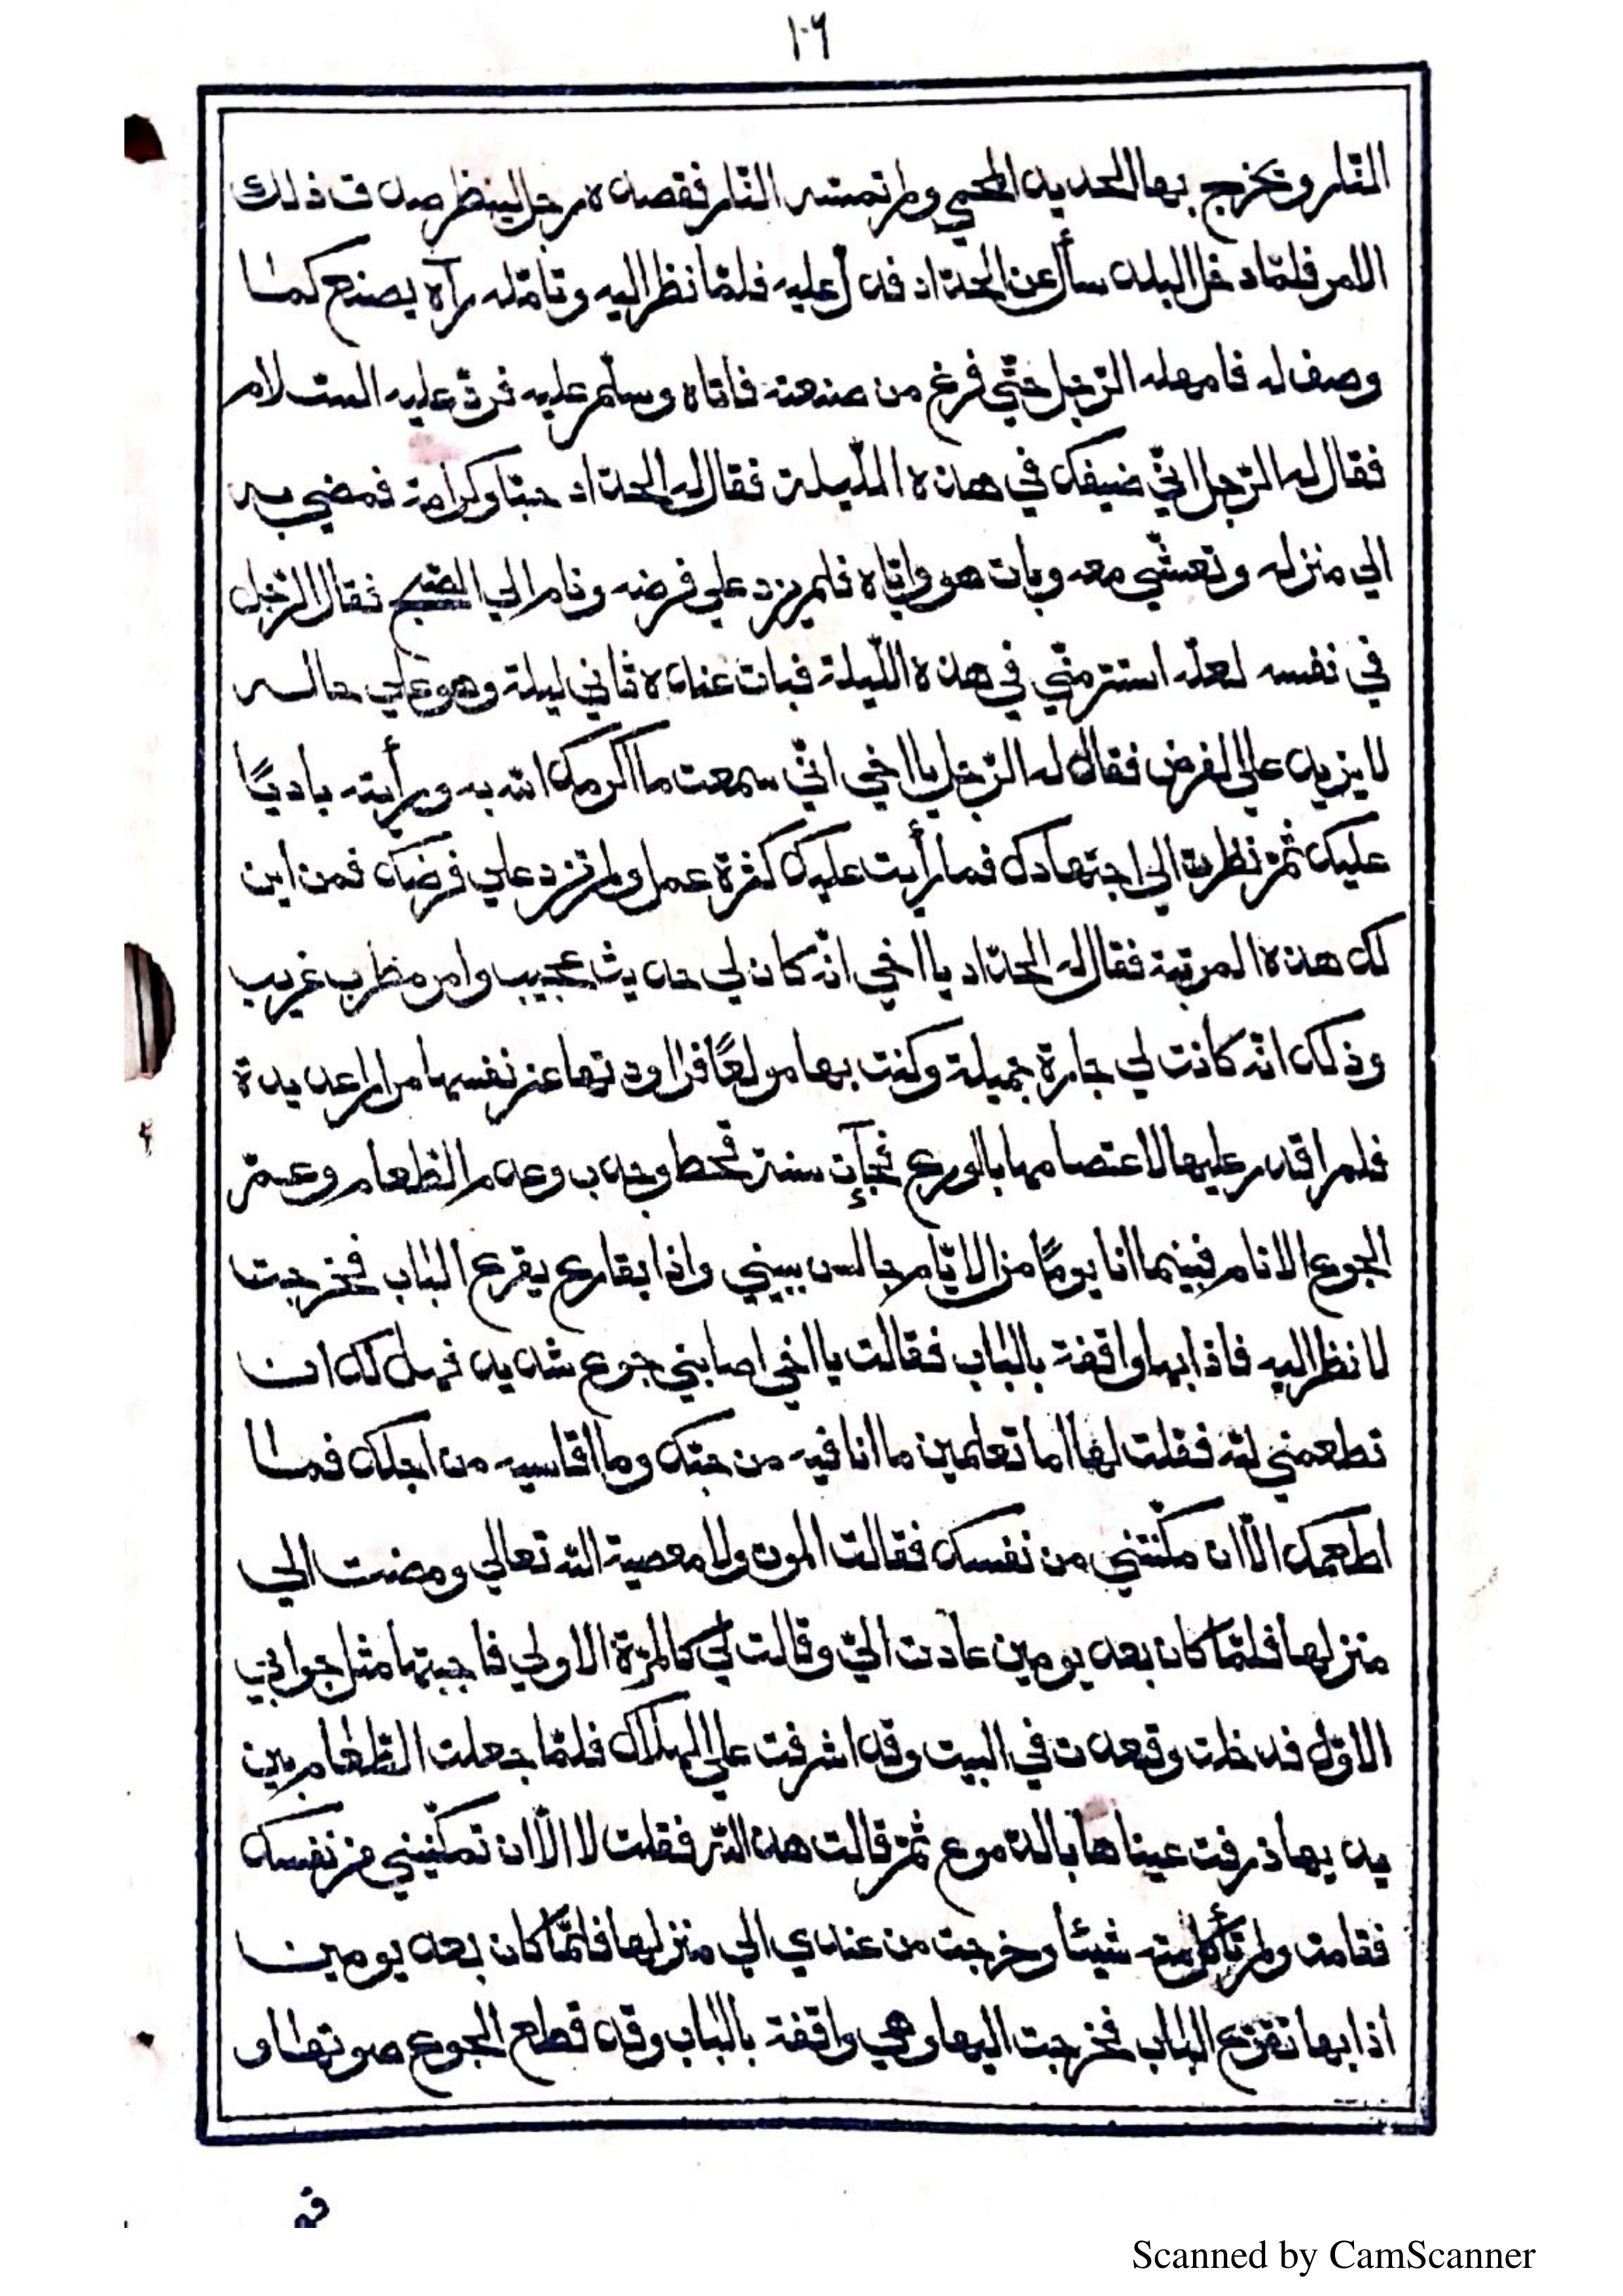 ١٠٦
النّار ويخرج بها الحديد المحمي ولم تمسّه النّار فقصده رجل لينظر صدق ذلك
الامر فلمّا دخل البلد سأل عن الحدّاد فدلّ عليه فلمّا نظر اليه وتامّله رآه يصنع كما
وصف له فامهله الرّجل حتّي فرغ من صنعته فاتاه وسلّم عليه فردّ عليه السّلام
فقال له الرّجل انّي ضيفك في هذه اللّيلة فقال له الحدّاد حبّا وكرامة فمضي به
الي منزله وتعشّي معه وبات هو وايّاه فلم يزد علي فرضه ونام الي الصّبح فقال الرّجل
في نفسه لعلّه استتر منّي في هذه اللّيلة فبات عنده ثاني ليلة وهو علي حاله
لا يزيد علي الفرض فقال له الرّجل يا اخي انّي سمعت ما اكرمك الله به ورأيته باديًا
عليك ثمّ نظرت الي اجتهادك فما رأيت عليك كثرة عمل ولم تزد علي فرضك فمن اين
لك هذه المرتبة فقال له الحدّاد يا اخي انّه كان لي حديث عجيب وامر مطرب غريب
وذلك انّه كانت لي جارة جميلة وكنت بها مولعًا فراودتها عن نفسها مرارا عديدة
فلم اقدر عليها لاعتصامها بالورع فجآءت سنة قحط وجدب وعدم الطّعام وعمّ
الجوع الانام فبينما انا يومًا من الايّام جالس ببيتي واذا بقارع يقرع الباب فخرجت
لانظر اليه فاذا بها واقفة بالباب فقالت يا اخي اصابني جوع شديد فهل لك ان
تطعمني لله فقلت لها اما تعلمين ما انا فيه من حبّك وما اقاسيه من اجلك فما
اطعمك الّا ان مكّنتني من نفسك فقالت الموت ولا معصية الله تعالي ومضت الي
منزلها فلمّا كان بعد يومين عادت اليّ وقالت لي كالمرّة الاولي فاجبتها مثل جوابي
الاوّل فدخلت وقعدت في البيت وقد اشرفت علي الهلاك فلمّا جعلت الطّعام بين
يديها ذرفت عيناها بالدّموع ثمّ قالت هذا لله فقلت لا الّا ان تمكّنيني من نفسك
فقامت ولم تأكل منه شيئا وخرجت من عندي الي منزلها فلمّا كان بعد يومين
اذا بها تقرع الباب فخرجت اليها وهي واقفة بالباب وقد قطع الجوع صوتها و
Scanned by CamScanner